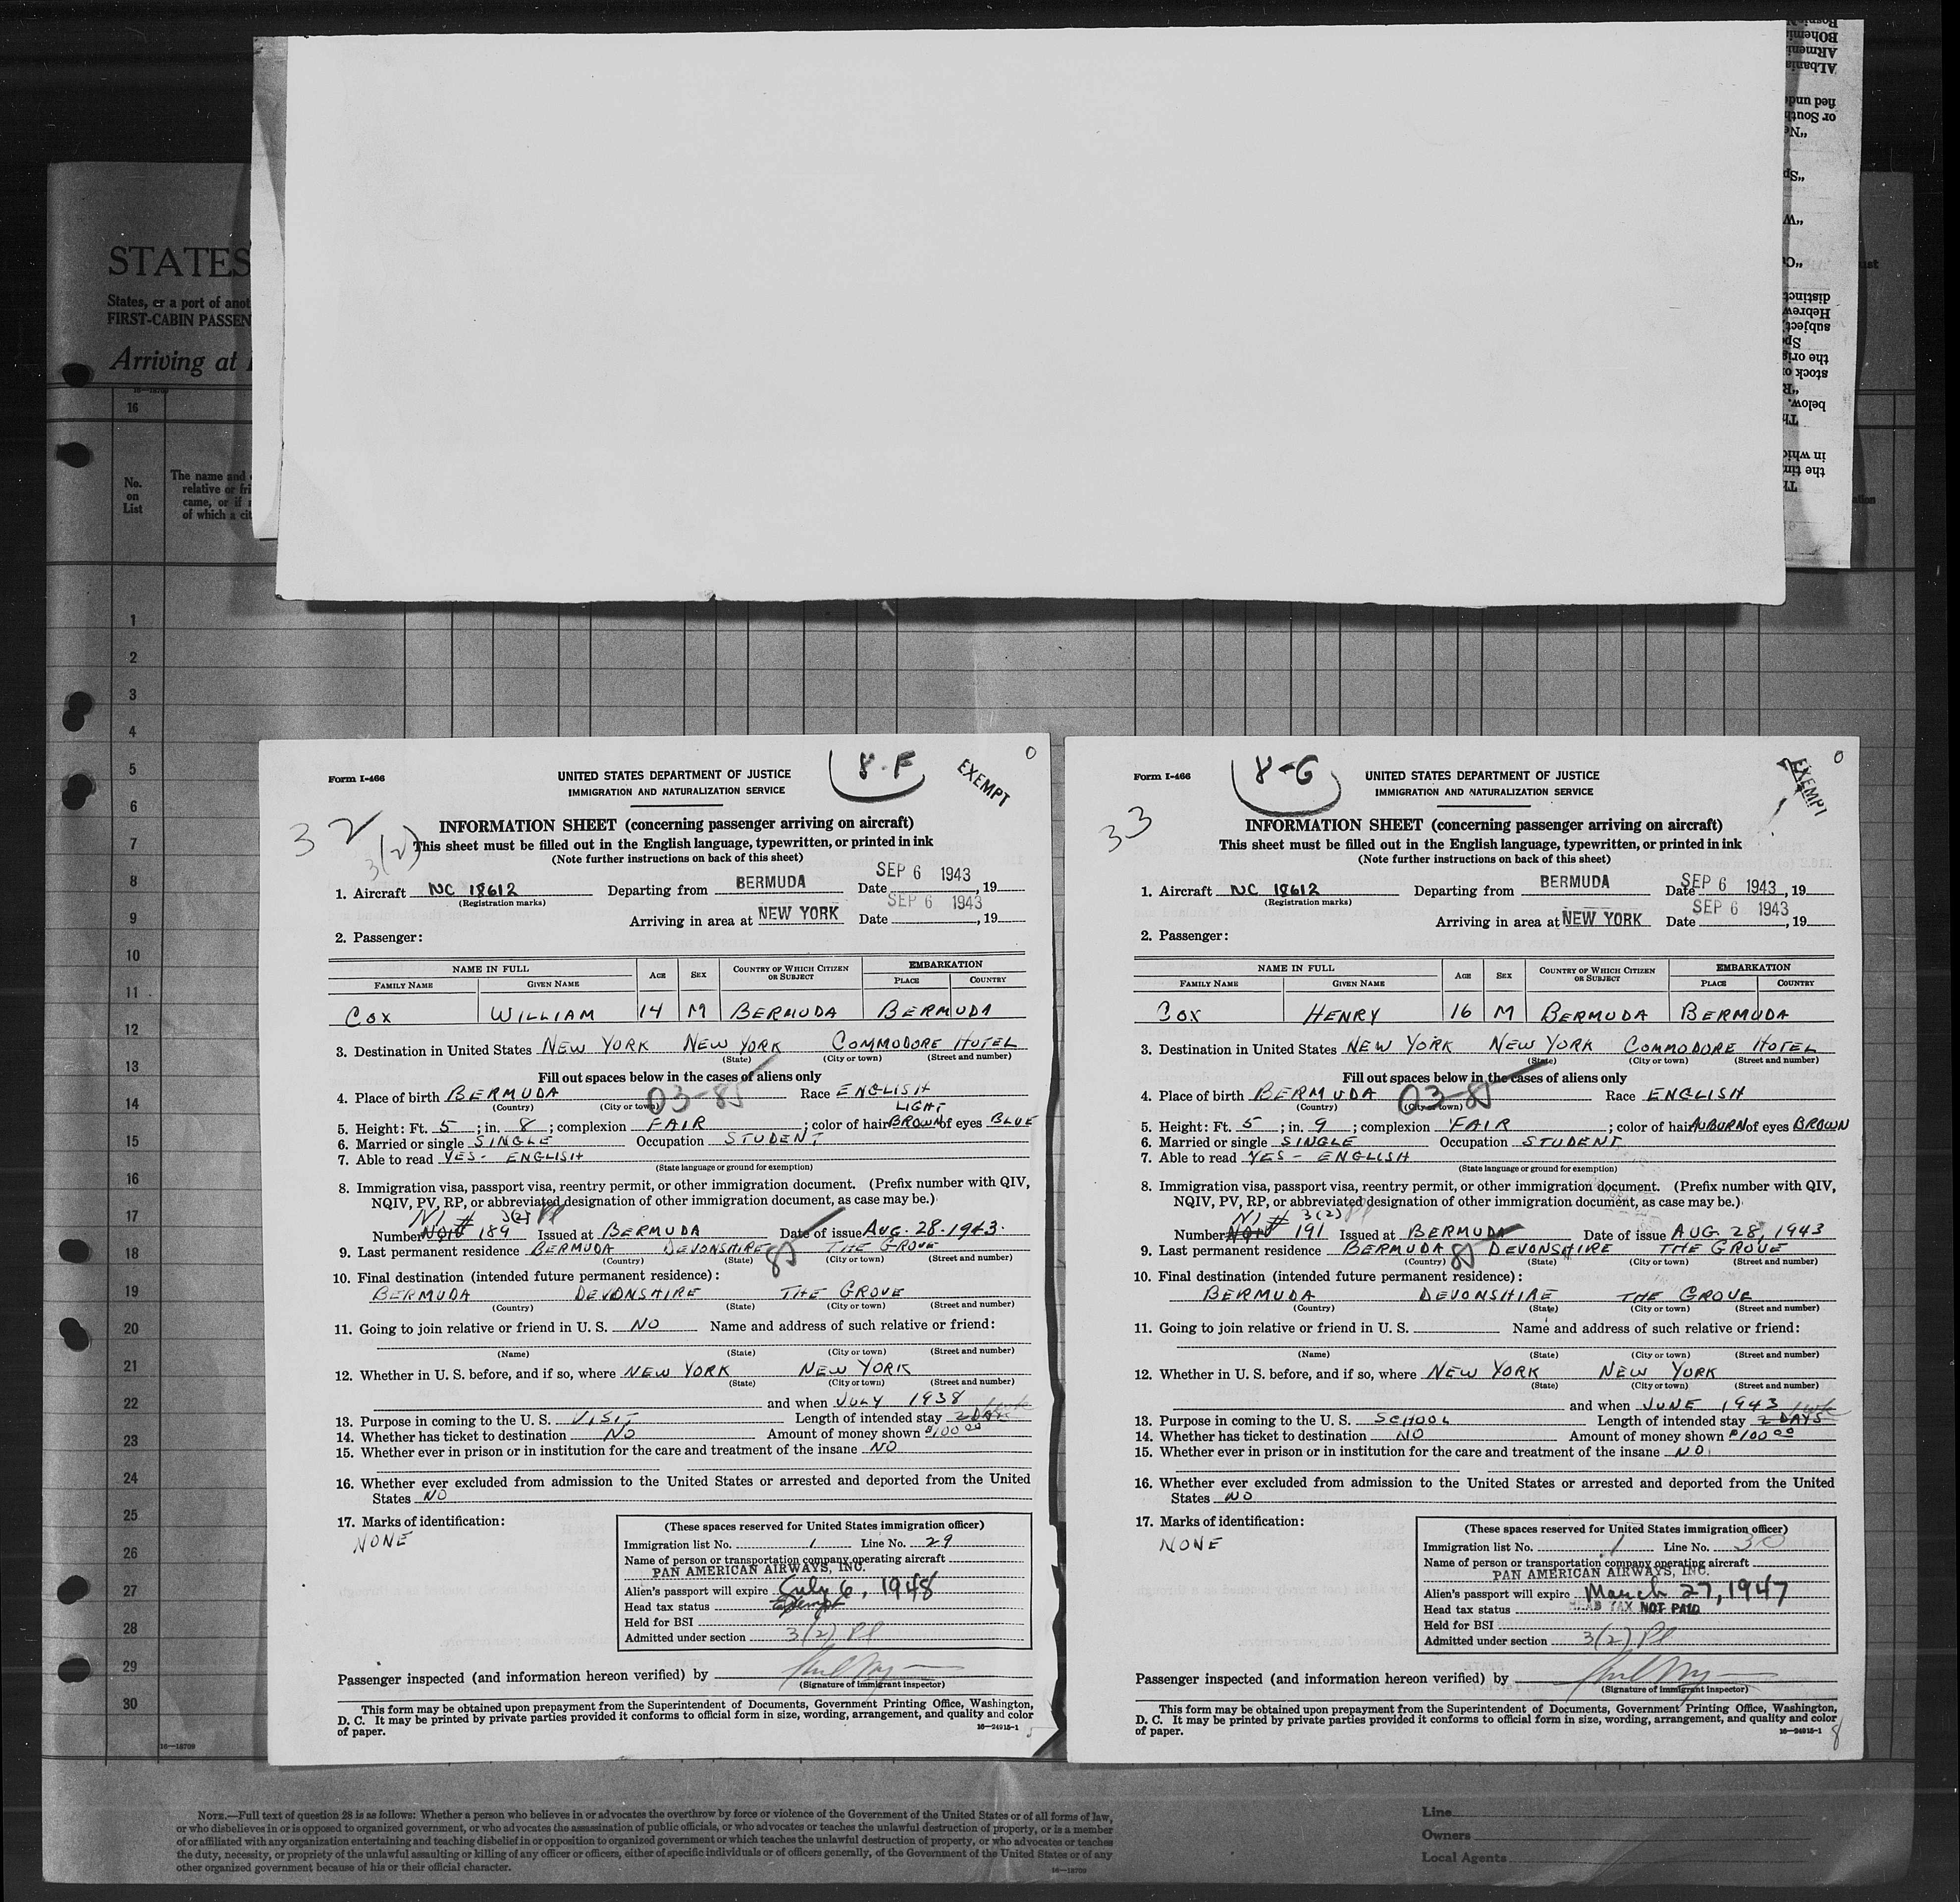 STATES
States, or a port of anot
FIRST-CABIN PASSEN
Arriving at
16
No.
on
List
The name and
relative or fri
came, or if
of which a cit
1
2
3
4
5
6
7
8
9
10
11
12
13
14
15
16
17
18
19
20
21
22
23
24
25
26
27
28
29
30
16—18709
BOhemi
ARmeni
ALbania
fied und
or South
"Ne
"Sp
"W
"Cu
distinct
Hebrew
subject
Sp
the orig
stock o
"R
below.
Th
in whic
the tim
Th
Form I-466
8-F
EXEMPT
0
UNITED STATES DEPARTMENT OF JUSTICE
IMMIGRATION AND NATURALIZATION SERVICE
32
3(2)
INFORMATION SHEET (concerning passenger arriving on aircraft)
This sheet must be filled out in the English language, typewritten, or printed in ink
(Note further instructions on back of this sheet)
1. Aircraft NC 18612 Departing from BERMUDA Date SEP 6 1943, 19
(Registration marks)
Arriving in area at NEW YORK Date SEP 6 1943, 19
2. Passenger:
NAME IN FULL AGE SEX COUNTRY OF WHICH CITIZEN OR SUBJECT EMBARKATION
FAMILY NAME GIVEN NAME PLACE COUNTRY
COX WILLIAM 14 M BERMUDA BERMUDA
3. Destination in United States NEW YORK NEW YORK COMMODORE HOTEL
(State) (City or town) (Street and number)
Fill out spaces below in the cases of aliens only
4. Place of birth BERMUDA 03-85 Race ENGLISH
(Country) (City or town)
LIGHT
5. Height: Ft. 5; in. 8; complexion FAIR; color of hair BROWN of eyes BLUE
6. Married or single SINGLE Occupation STUDENT
7. Able to read YES - ENGLISH
(State language or ground for exemption)
8. Immigration visa, passport visa, reentry permit, or other immigration document. (Prefix number with QIV,
NQIV, PV, RP, or abbreviated designation of other immigration document, as case may be.)
NI # 3(2) Pl
Number 189 Issued at BERMUDA Date of issue AUG. 28. 1943.
9. Last permanent residence BERMUDA DEVONSHIRE 85 THE GROVE
(Country) (State) (City or town) (Street and number)
10. Final destination (intended future permanent residence):
BERMUDA DEVONSHIRE THE GROVE
(Country) (State) (City or town) (Street and number)
11. Going to join relative or friend in U. S. NO Name and address of such relative or friend:
(Name) (State) (City or town) (Street and number)
12. Whether in U. S. before, and if so, where NEW YORK NEW YORK
(State) (City or town) (Street and number)
and when JULY 1938
13. Purpose in coming to the U. S. VISIT Length of intended stay 2 DAYS 1 wk
14. Whether has ticket to destination NO Amount of money shown $100.00
15. Whether ever in prison or in institution for the care and treatment of the insane NO
16. Whether ever excluded from admission to the United States or arrested and deported from the United
States NO
17. Marks of identification:
NONE
(These spaces reserved for United States immigration officer)
Immigration list No. 1 Line No. 29
Name of person or transportation company operating aircraft
PAN AMERICAN AIRWAYS, INC.
Alien's passport will expire July 6, 1948
Head tax status Exempt
Held for BSI
Admitted under section 3(2) Pl
Passenger inspected (and information hereon verified) by
(Signature of immigrant inspector)
This form may be obtained upon prepayment from the Superintendent of Documents, Government Printing Office, Washington,
D. C. It may be printed by private parties provided it conforms to official form in size, wording, arrangement, and quality and color
of paper. 16—24915-1
5
Form I-466
8-G
EXEMPT
0
UNITED STATES DEPARTMENT OF JUSTICE
IMMIGRATION AND NATURALIZATION SERVICE
33
INFORMATION SHEET (concerning passenger arriving on aircraft)
This sheet must be filled out in the English language, typewritten, or printed in ink
(Note further instructions on back of this sheet)
1. Aircraft NC 18612 Departing from BERMUDA Date SEP 6 1943, 19
(Registration marks)
Arriving in area at NEW YORK Date SEP 6 1943, 19
2. Passenger:
NAME IN FULL AGE SEX COUNTRY OF WHICH CITIZEN OR SUBJECT EMBARKATION
FAMILY NAME GIVEN NAME PLACE COUNTRY
COX HENRY 16 M BERMUDA BERMUDA
3. Destination in United States NEW YORK NEW YORK COMMODORE HOTEL
(State) (City or town) (Street and number)
Fill out spaces below in the cases of aliens only
4. Place of birth BERMUDA 03-85 Race ENGLISH
(Country) (City or town)
5. Height: Ft. 5; in. 9; complexion FAIR; color of hair AUBURN of eyes BROWN
6. Married or single SINGLE Occupation STUDENT
7. Able to read YES - ENGLISH
(State language or ground for exemption)
8. Immigration visa, passport visa, reentry permit, or other immigration document. (Prefix number with QIV,
NQIV, PV, RP, or abbreviated designation of other immigration document, as case may be.)
NI # 3(2) Pl
Number 191 Issued at BERMUDA Date of issue AUG. 28, 1943
9. Last permanent residence BERMUDA 85 DEVONSHIRE THE GROVE
(Country) (State) (City or town) (Street and number)
10. Final destination (intended future permanent residence):
BERMUDA DEVONSHIRE THE GROVE
(Country) (State) (City or town) (Street and number)
11. Going to join relative or friend in U. S. Name and address of such relative or friend:
(Name) (State) (City or town) (Street and number)
12. Whether in U. S. before, and if so, where NEW YORK NEW YORK
(State) (City or town) (Street and number)
and when JUNE 1943
13. Purpose in coming to the U. S. SCHOOL Length of intended stay 2 DAYS 1 wk
14. Whether has ticket to destination NO Amount of money shown $100.00
15. Whether ever in prison or in institution for the care and treatment of the insane NO.
16. Whether ever excluded from admission to the United States or arrested and deported from the United
States NO
17. Marks of identification:
NONE
(These spaces reserved for United States immigration officer)
Immigration list No. 1 Line No. 30
Name of person or transportation company operating aircraft
PAN AMERICAN AIRWAYS, INC.
Alien's passport will expire March 27, 1947
Head tax status HEAD TAX NOT PAID
Held for BSI
Admitted under section 3(2) Pl
Passenger inspected (and information hereon verified) by
(Signature of immigrant inspector)
This form may be obtained upon prepayment from the Superintendent of Documents, Government Printing Office, Washington,
D. C. It may be printed by private parties provided it conforms to official form in size, wording, arrangement, and quality and color
of paper. 16—24915-1
8
NOTE.—Full text of question 28 is as follows: Whether a person who believes in or advocates the overthrow by force or violence of the Government of the United States or of all forms of law,
or who disbelieves in or is opposed to organized government, or who advocates the assassination of public officials, or who advocates or teaches the unlawful destruction of property, or is a member
of or affiliated with any organization entertaining and teaching disbelief in or opposition to organized government or which teaches the unlawful destruction of property, or who advocates or teaches
the duty, necessity, or propriety of the unlawful assaulting or killing of any officer or officers, either of specific individuals or of officers generally, of the Government of the United States or of any
other organized government because of his or their official character.
16—18709
Line
Owners
Local Agents